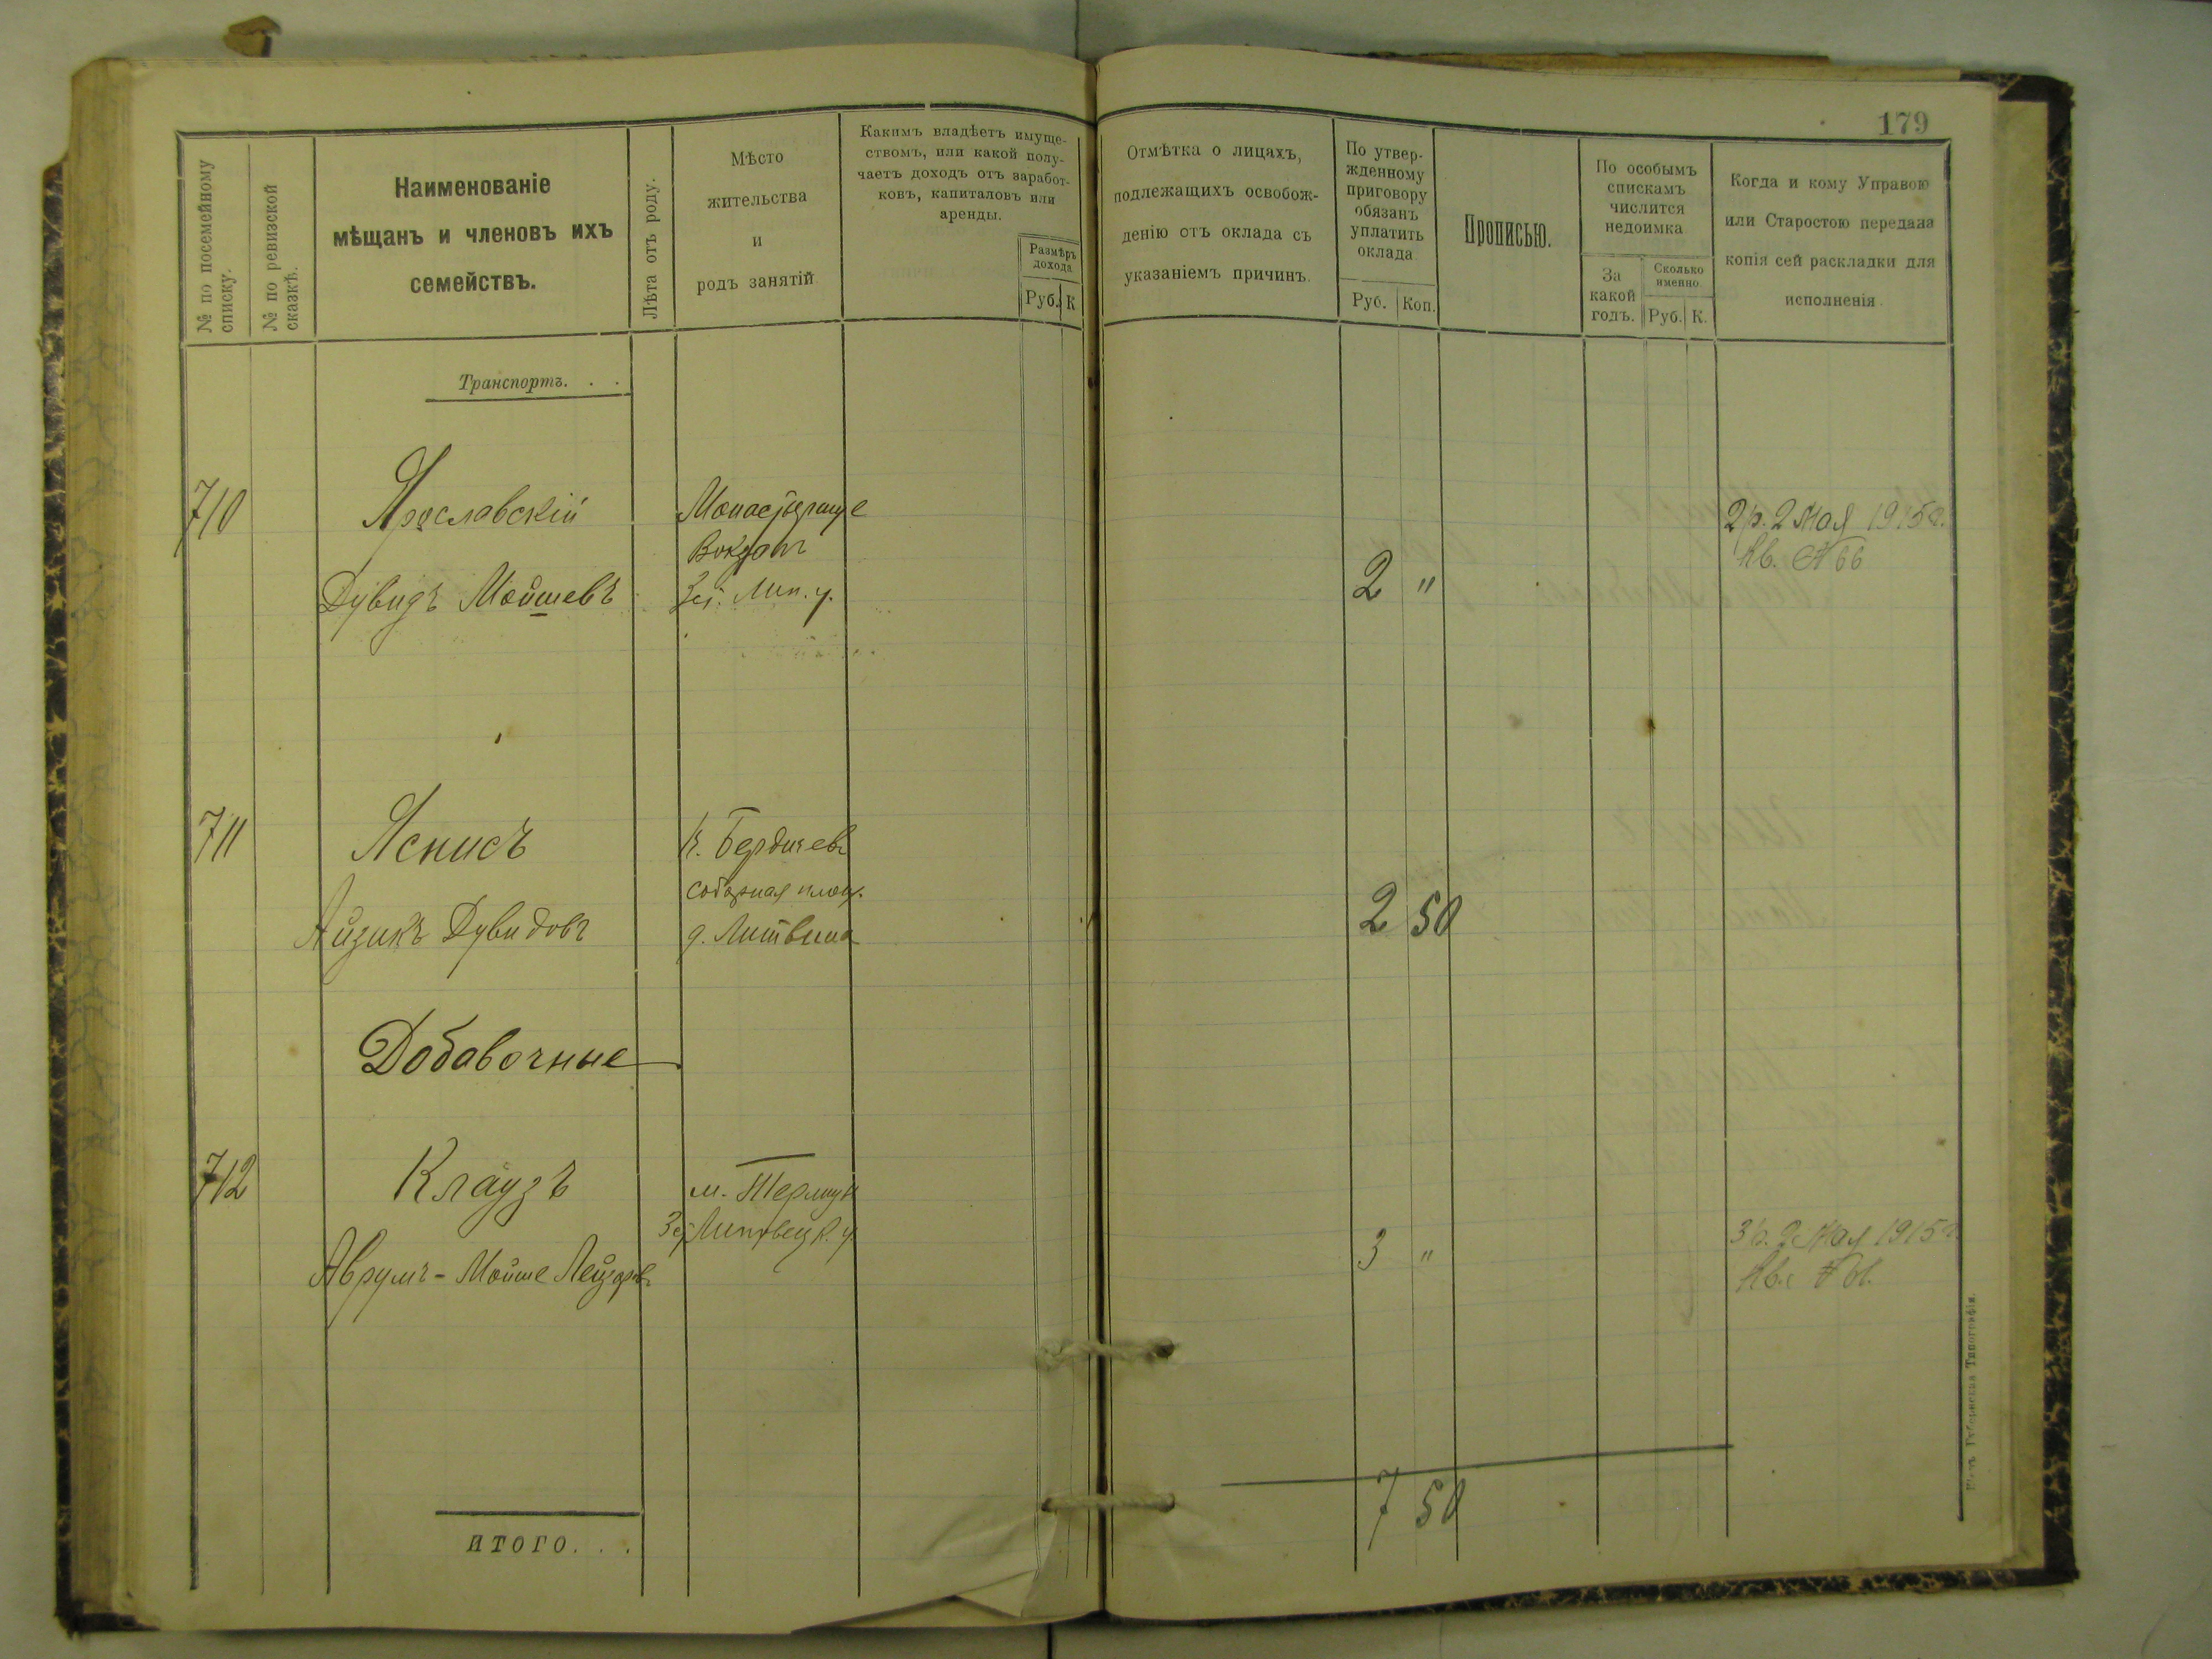 179
№ по посемейному списку.
№ по ревизской сказкѣ.
Наименованіе
мѣщанъ и членовъ ихъ
семействъ.
Лѣта отъ роду.
Мѣсто
жительства
и
родъ занятій
Какимъ владѣетъ имуще-
ствомъ, или какой полу-
чаетъ доходъ отъ заработ-
ковъ, капиталовъ или
аренды.
Размѣръ
дохода
Руб. К
Отмѣтка о лицахъ,
подлежащихъ освобож-
денію отъ оклада съ
указаніемъ причинъ.
По утвер-
жденному
приговору
обязанъ
уплатить
оклада
Руб. Коп.
Прописью.
По особымъ
спискамъ
числится
недоимка
За
какой
годъ.
Сколько
именно.
Руб. К.
Когда и кому Управою
или Старостою передана
копія сей раскладки для
исполненія
Транспортъ. . .
710 Ярославскій
Дувидъ Мойшевъ
Монастырище
Вокзалъ
Лип. у.
2 "
2 р. 2 мая 1915 г.
Кв. № 66
711 Яснисъ
Айзикъ Дувидовъ
Бердичевъ
Соборная площ.
д. Литвина
2 50
Добавочные
712 Клаузъ
Аврумъ-Мойше Лейзоровъ
м.
Липовецк. у.
3 "
3 р. 2 мая 1915 г.
Кв.
ИТОГО. . .
7 50
Губернская Типографія.